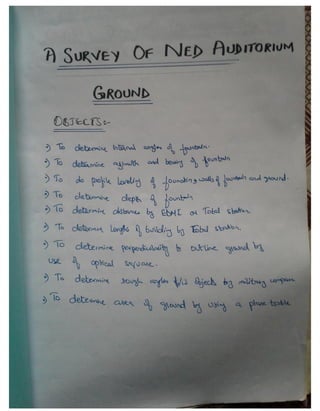 A SURVEY OF NED AUDITORIUM
GROUND
OBJECTS:-
→ To determine internal angles of fountain.
→ To determine azimuth and bearing of fountain
→ To do profile leveling of foundation, walls of fountain and ground.
→ To determine depth of fountain
→ To determine distances by EDMI or Total station
→ To determine lengths of building by Total station.
→ To determine perpendicularity to outline ground by
use of optical square.
→ To determine rough angles b/w objects by military compass
→ To determine area of ground by using a plane table